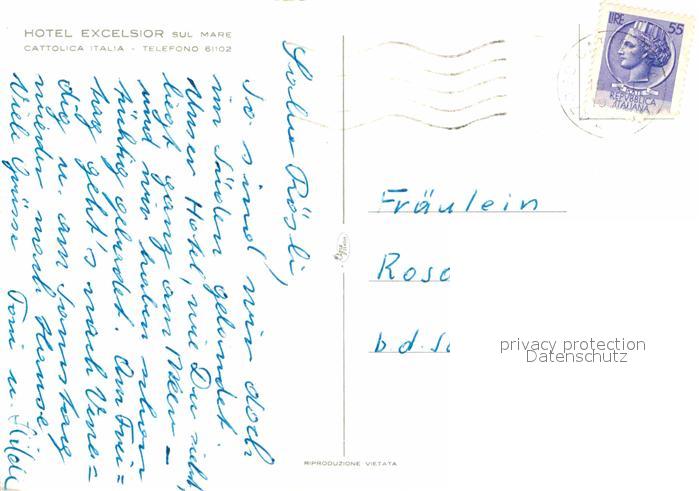 HOTEL EXCELSIOR SUL MARE
CATTOLICA ITALIA - TELEFONO 61102
Liebes Rösli,
So sind wir doch
im Süden gelandet.
Unser Hotel, wie Du siehst,
liegt ganz am Meer -
und wir haben schon
tüchtig gebadet. Am Frei=
tag geht's nach Vene=
dig u. am Samstag
wieder nach Hause.
Viele Grüsse Toni u. Hilde
LIRE 55
REPUBBLICA
ITALIANA
Fräulein
Rosa
b d. Sc
privacy protection
Datenschutz
RIPRODUZIONE VIETATA